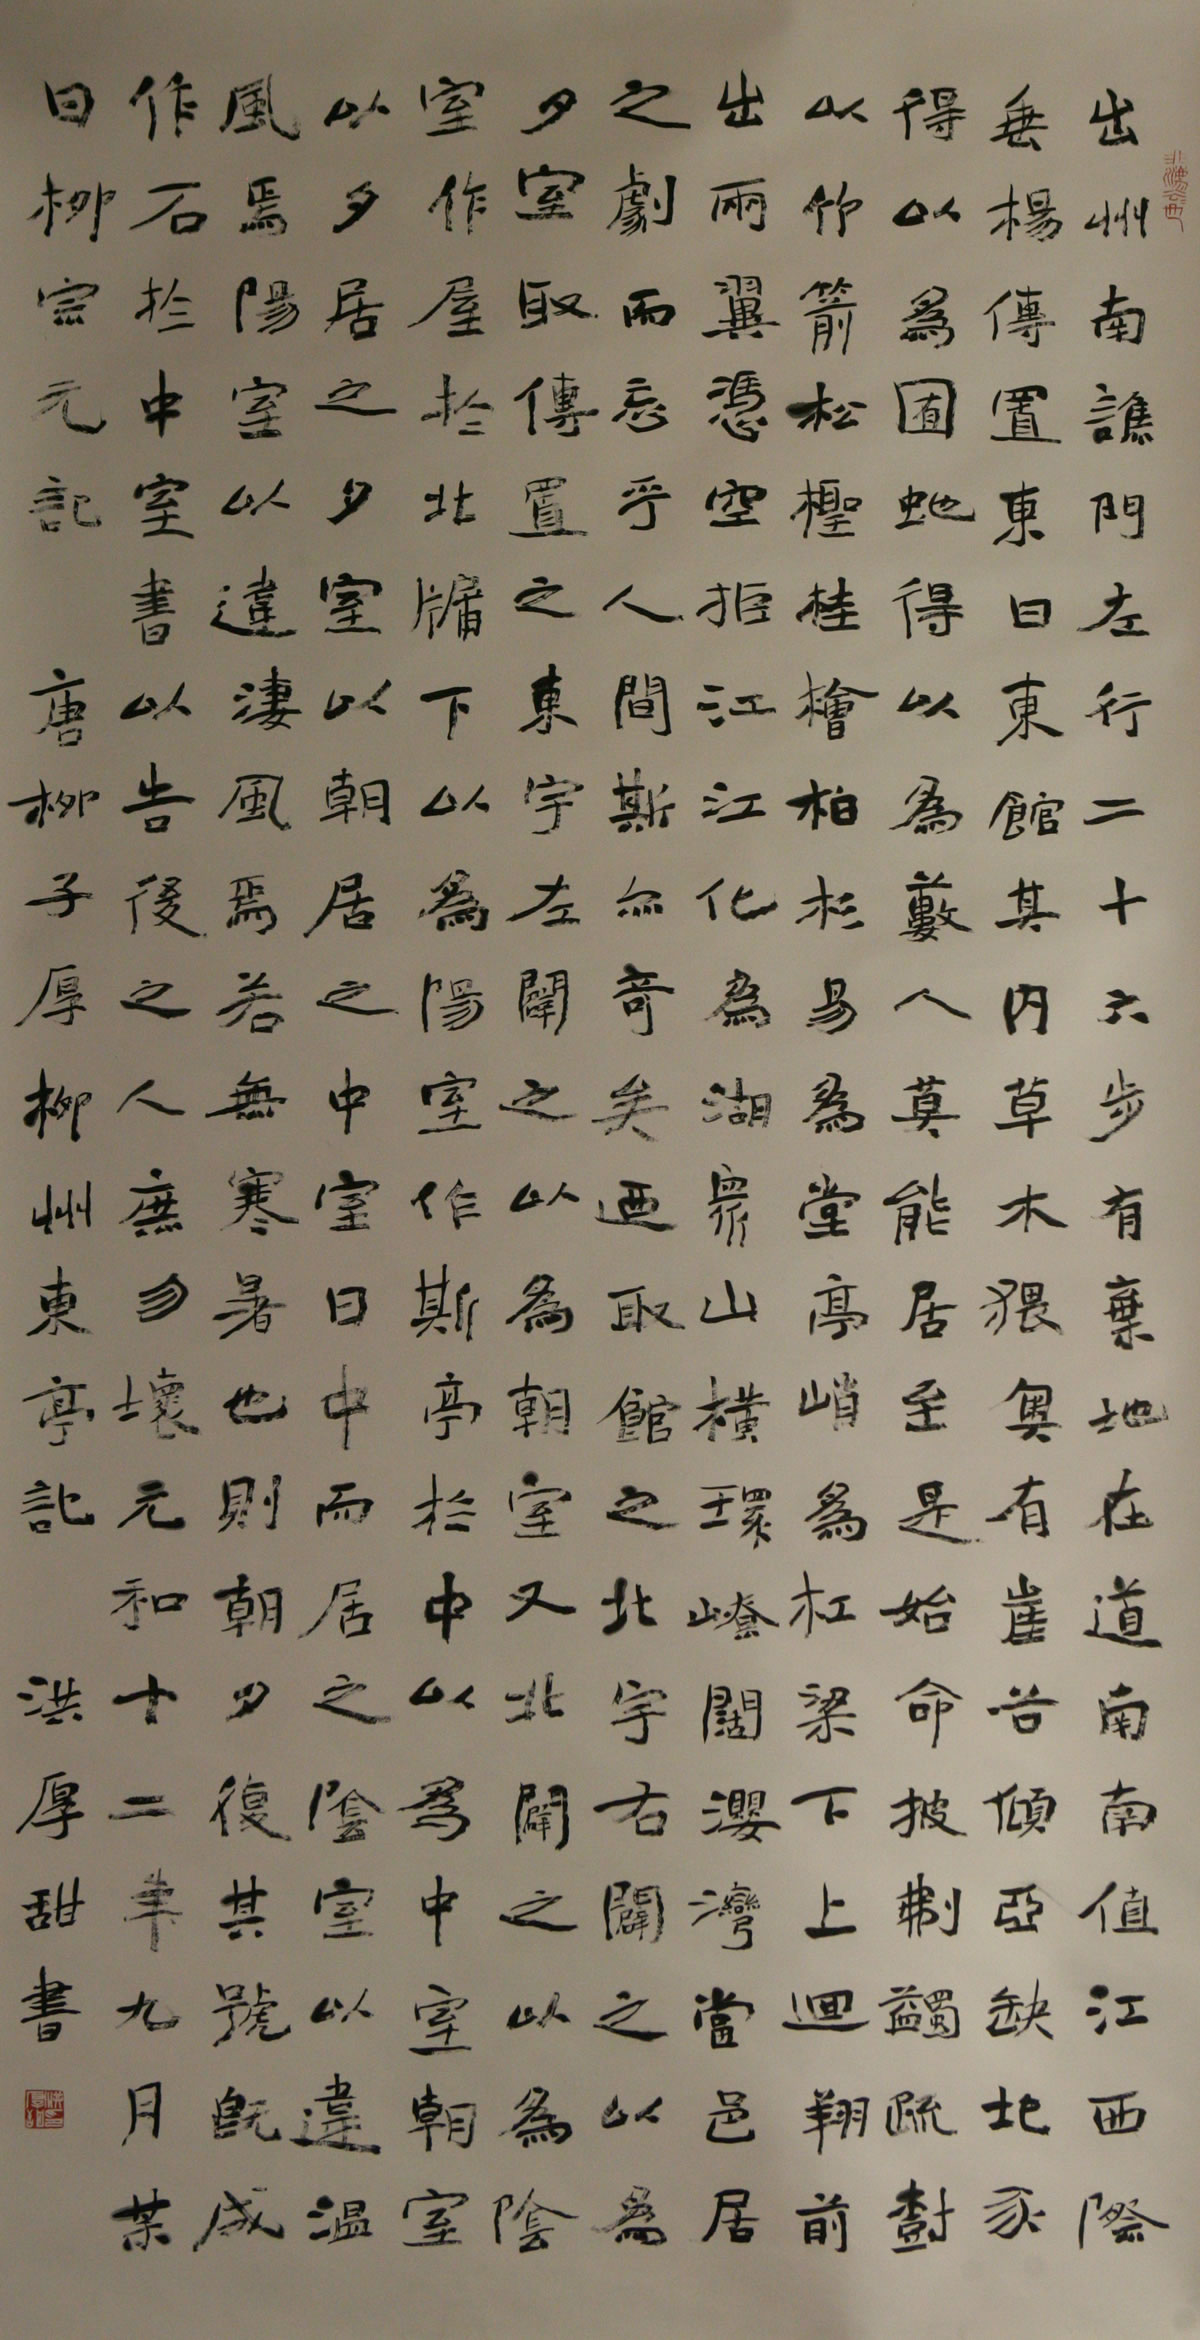 出州南譙門左行二十六步有棄地在道南南值江西際
垂楊傳置東曰東館其內草木猥奧有崖谷傾亞缺圮豕
得以為囿虵得以為藪人莫能居至是始命披刜蠲疏樹
以竹箭松檉桂檜柏杉易為堂亭峭為杠梁下上徊翔前
出兩翼憑空拒江江化為湖衆山橫環嶛闊瀴灣當邑居
之劇而忘乎人間斯亦奇矣迺取館之北宇右闢之以為
夕室取傳置之東宇左闢之以為朝室又北闢之以為陰
室作屋於北牖下以為陽室作斯亭於中以為中室朝室
以夕居之夕室以朝居之中室日中而居之陰室以違溫
風焉陽室以違淒風焉若無寒暑也則朝夕復其號既成
作石於中室書以告後之人庶勿壞元和十二年九月某
日柳宗元記 唐柳子厚柳州東亭記 洪厚甜書